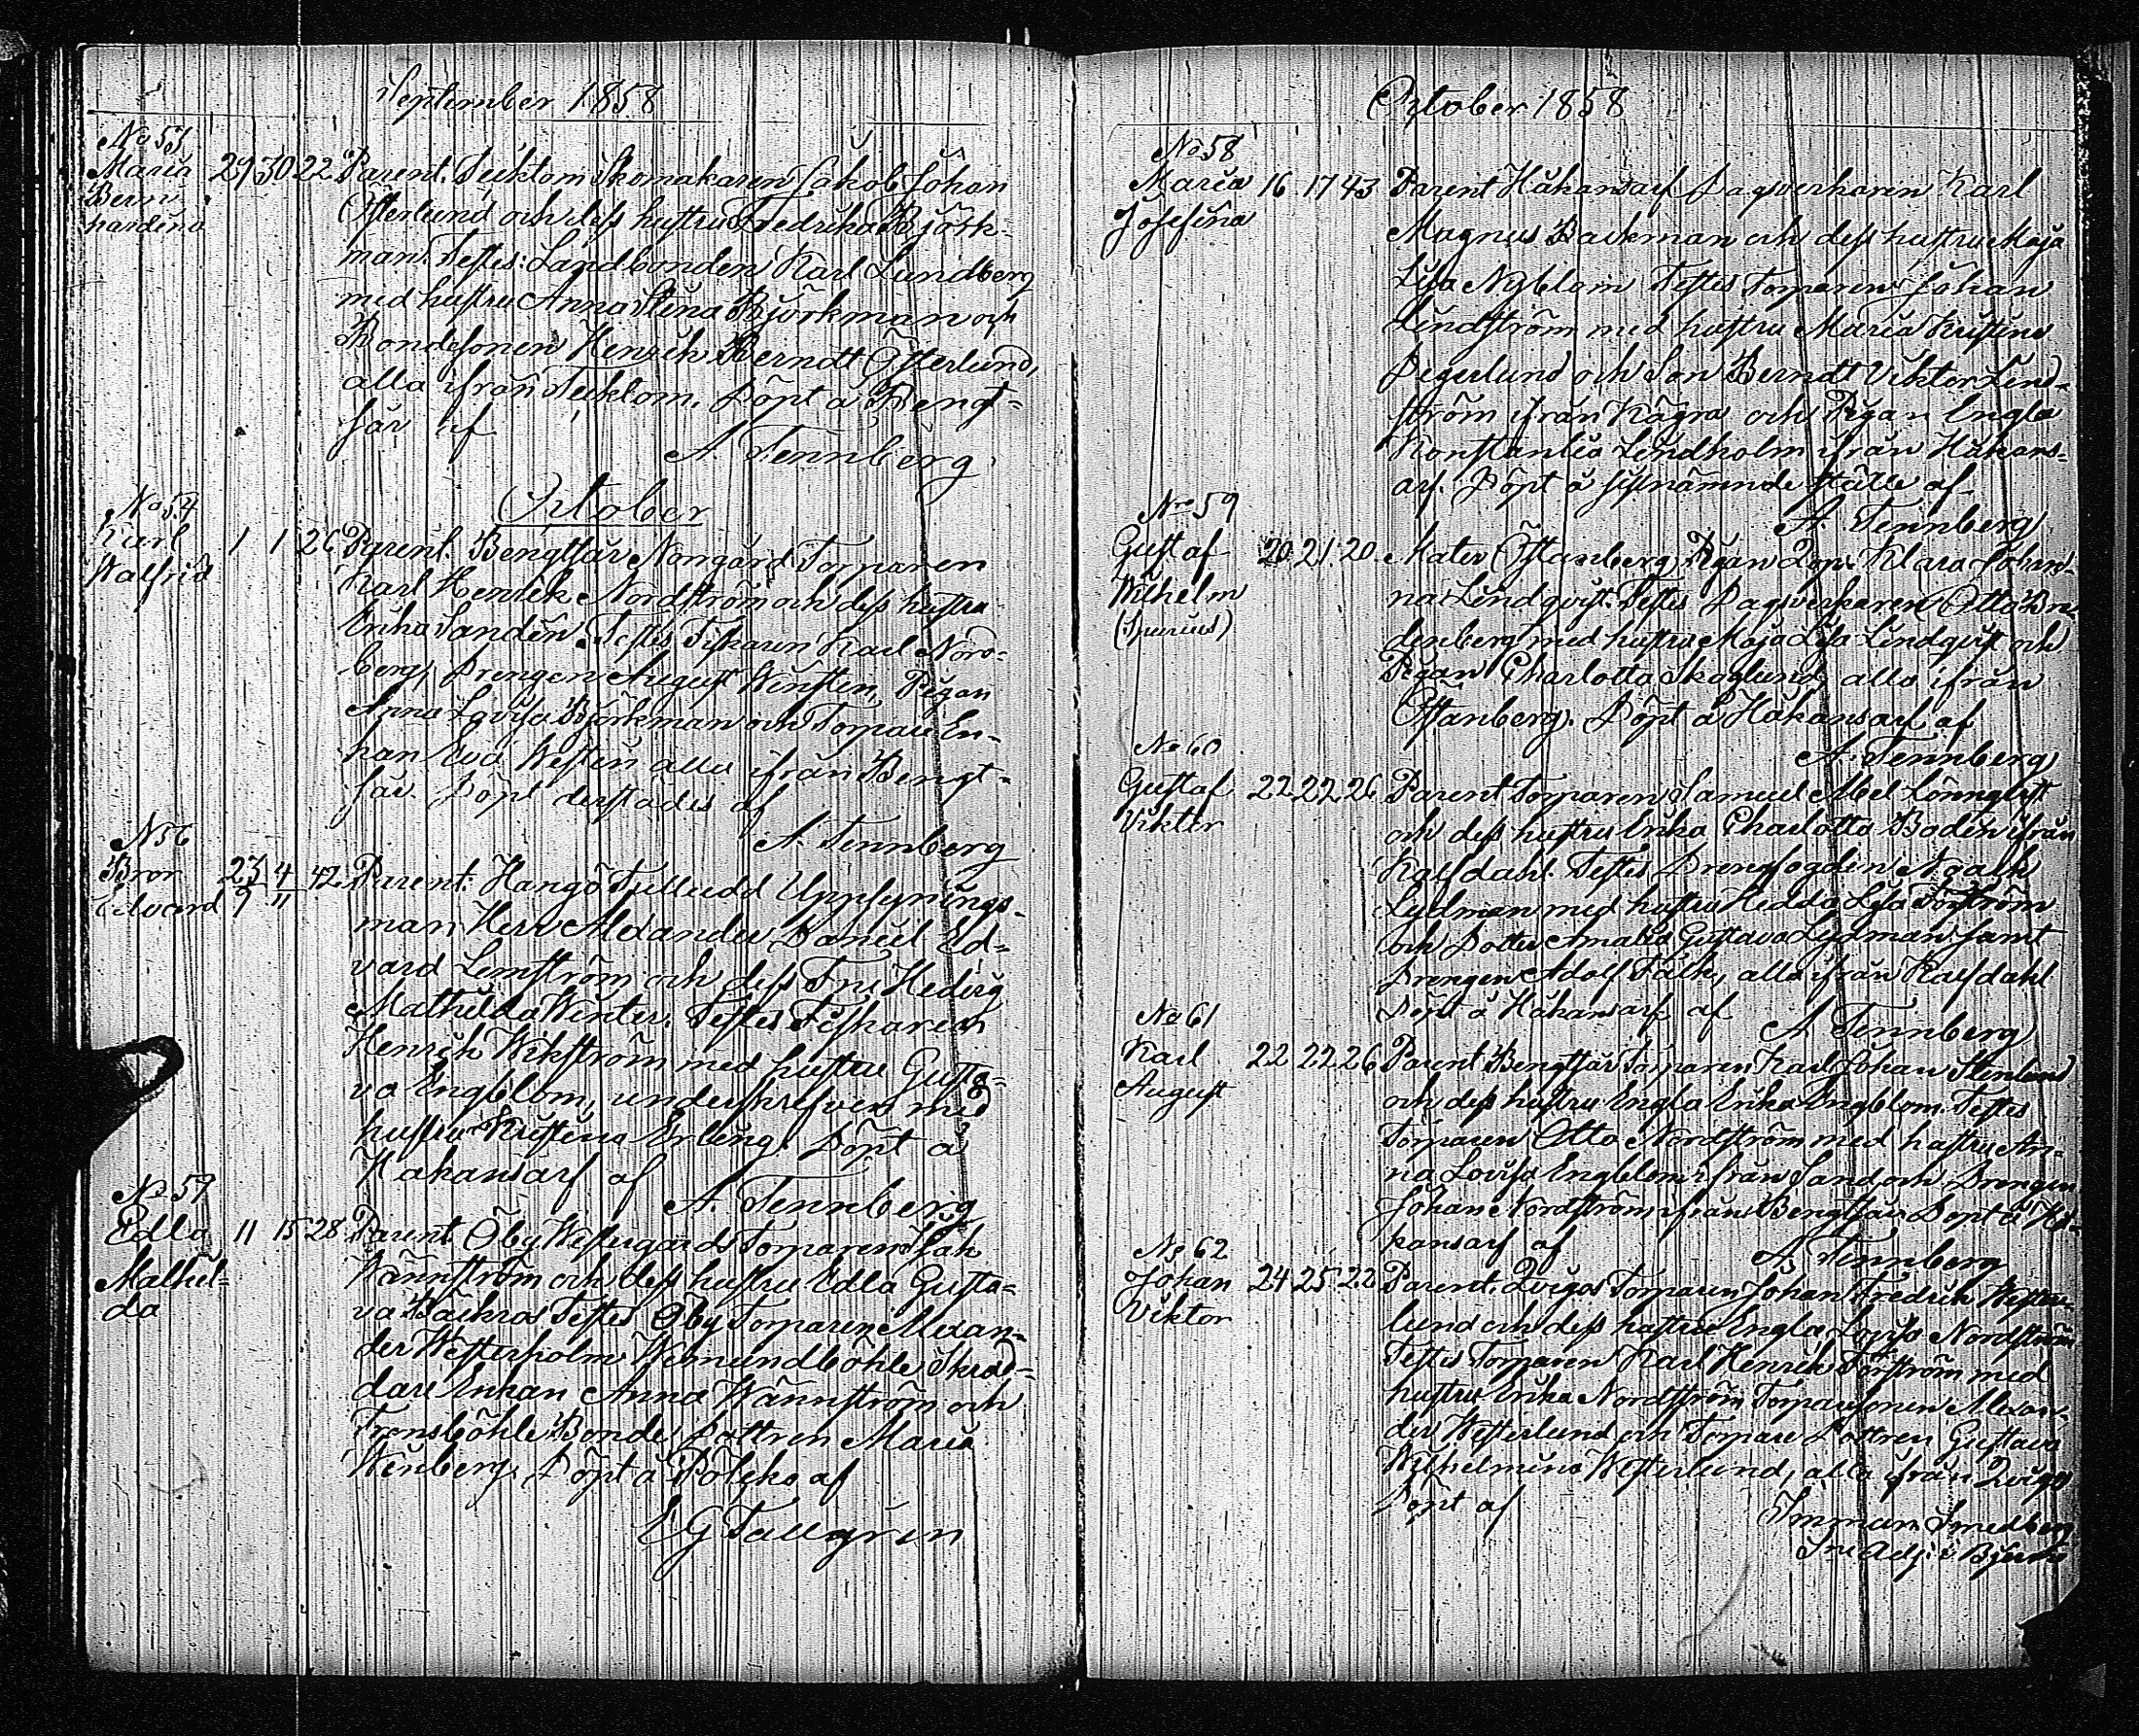 September 1858
No 53
Maria 29 30 22 Parent. Tecktom Skomakaren Jakob Johan
Bern
hardina
Österlund och dess hustru Fredrika Björk-
man. Testes: Landbonden Karl Lundberg
med hustru Anna Stina Björkman och
Bondesonen Henrik Berndt Österlund,
alla ifrån Tecktom. Döpt å Bengt-
sår af
A. Tennberg
October
No 54
Karl 1 1 26 Parent. Bengtsår Norrgård Torparen
Walfrid
Karl Henrik Nordström och dess hustru
Erika Sandén. Testes Fiskaren Karl Nord-
berg, Drengen August Wenstén, Pigan
Anna Lovisa Björkman och Torpare En-
kan Eva Westén alla ifrån Bengt-
sår. Döpt derstädes af
A. Tennberg
N 56
Bror 23/9 4/11 42 Parent. Hangö Tulludd Uppsynings-
Edvard
man Herr Alexander Daniel Ed-
vard Lemström och dess Fru Hedvig
Mathilda Winter. Testes Fiskaren
Henrik Wikström med hustru Gusta-
va Engblom, underskrifven med
hustru Kristina Erling. Döpt å
Håkansarf af
A. Tennberg
No 57
Edla 11 15 28 Parent. Öby Westergårds Torparen Isak
Mathil-
da
Wännström och dess hustru Edla Gusta-
va Bäckras Testes Öby Torparen Alexan-
der Westerholm Wemundböhle Skräd-
dare Enkan Anna Wännström och
Fransböhle Bonde Dottren Maria
Wenberg. Döpt å Pölsko af
E G Tallgren
October 1858
No 58
Maria 16 17 43 Parent Håkansarf Dagsverkaren Karl
Josefina
Magnus Backman och dess hustru Maja
Lisa Nyblom Testes Torparen Johan
Lindström med hustru Maria Kristina
Degerlund och Son Berndt Viktor Lind-
ström ifrån Kägra och Pigan Engla
Konstantia Lindholm ifrån Håkans-
arf. Döpt å sistnämnde ställe af
A. Tennberg
No 59
Gustaf 20 21 20. Mater Östanberg Pigan Klara Johan-
Wilhelm
(Spurius)
na Lindqvist. Testes Dagsverkaren Otto Bran-
denberg med hustru Maja Lisa Lindqvist och
Pigan Charlotta Skoglund, alla ifrån
Östanberg. Döpt å Håkansarf af
A. Tennberg
No 60
Gustaf 22 22 26 Parent Torparen Samuel Abel Lönnqvist
Viktor
och dess hustru Erika Charlotta Bodén ifrån
Kalfdahl. Testes Drengfogden Noak
Lydman med hustru Hedda Lisa Törström
och Dotter Amalia Gustava Lydman samt
Drengen Adolf Falk, alla ifrån Kalfdahl
Döpt å Håkansarf af
A Tennberg
No 61
Karl 22 22 26 Parent Bengtsår Torparen Karl Johan Stenlund
August
och dess hustru Engla Erika Engblom. Testes
Torparen Otto Nordström med hustru An-
na Lovisa Engblom ifrån Sand och Drengen
Johan Nordström ifrån Bengtsår Döpt å Hå-
kansarf af
A. Tennberg
No 62
Johan 24 25 22 Parent. Torparen Johan Fredrik Wester-
Viktor
lund och dess hustru Engla Lovisa Nordström
Testes Torparen Karl Henrik Törström med
hustru Erika Nordström Torparesonen Alexan-
der Westerlund och Torpare Dottren Gustava
Wilhelmina Westerlund, alla ifrån
Döpt af
Imman. Smedberg